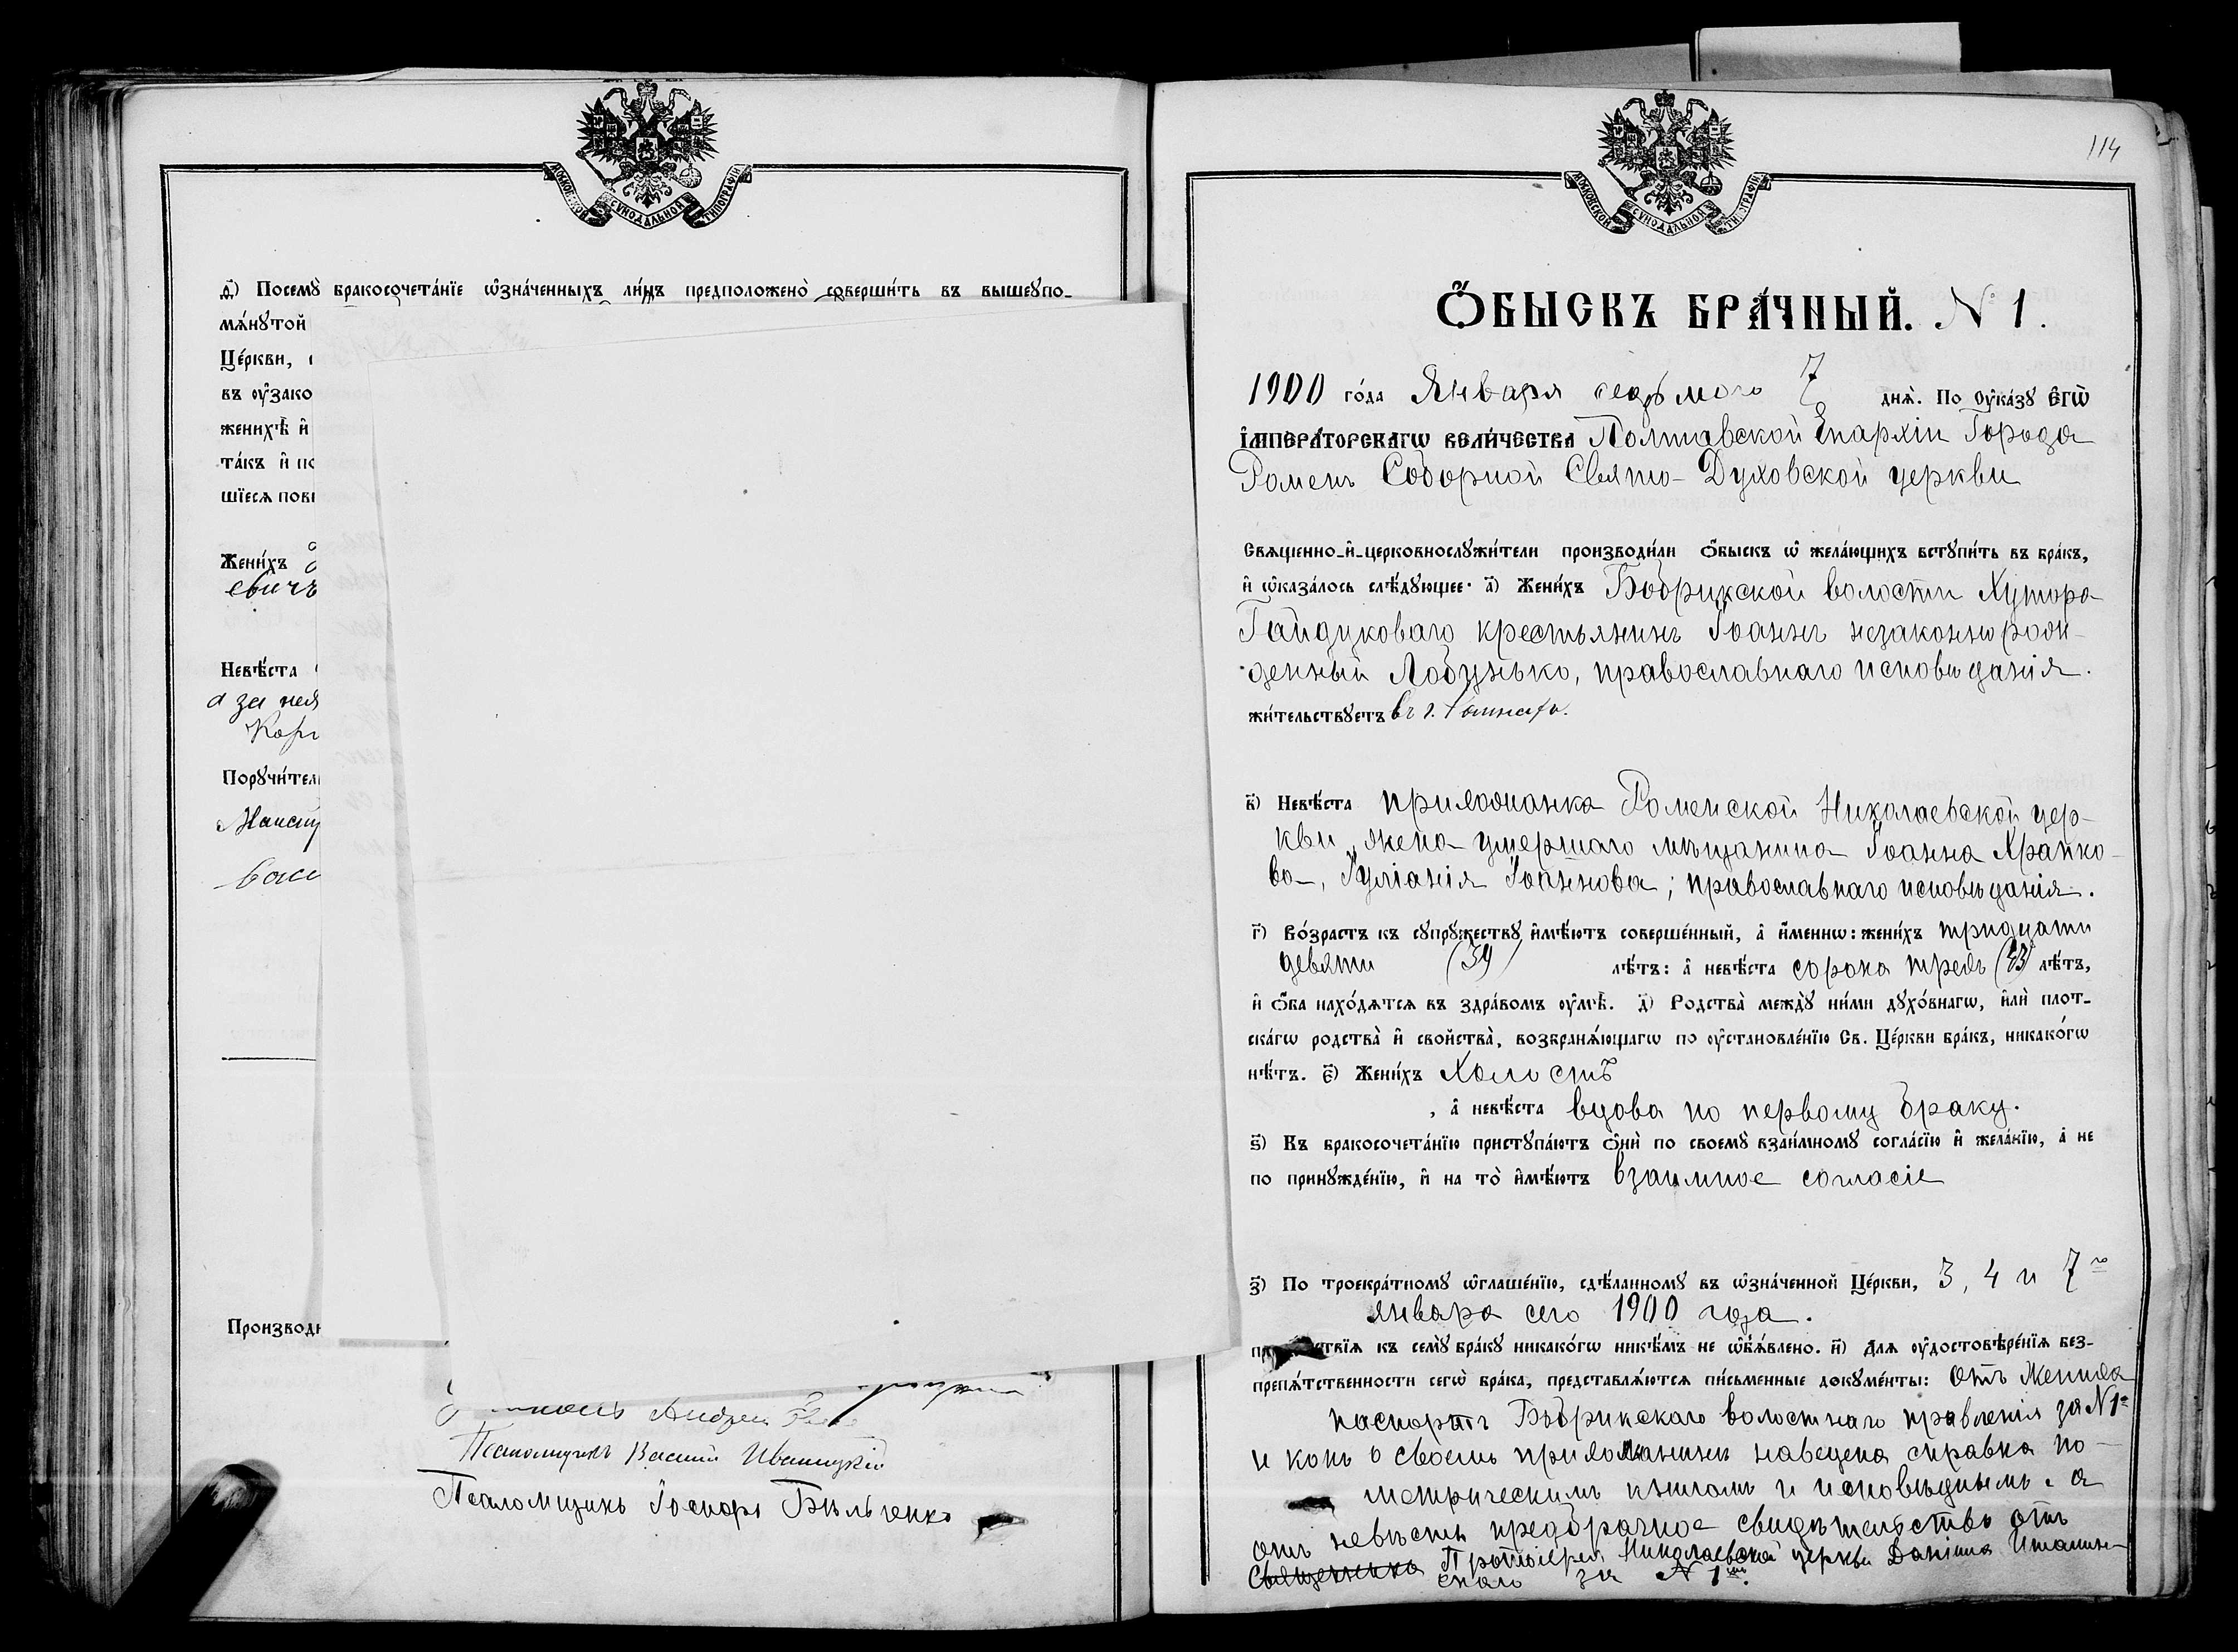 МОСКОВСКОЙ СѴНОДАЛЬНОЙ ТИПОГРАФІИ
д҃) Посемꙋ̀ бракосочета́нїе ѡ҆зна́ченныхъ ли́цъ предположено̀ соверши́ть въ вышеꙋпо-
мѧ́нꙋтой
Це́ркви,
въ ᲂу҆зако
женихѣ̀ и҆
та́къ и҆ по
шїесѧ пов
Жени́хъ
евичъ
Невѣ́ста
а за нея
Порꙋчи́тел
Производи
Андрей
Псаломщикъ Василій Иваницкій
Псаломщикъ Іосифъ Бѣльченко
114
МОСКОВСКОЙ СѴНОДАЛЬНОЙ ТИПОГРАФІИ
Ѻ҆БЫСКЪ БРА́ЧНЫЙ. № 1.
1900 го́да Января седьмого 7 днѧ̀. По ᲂу҆ка́зꙋ Є҆ГѠ̀
І҆МПЕРА́ТОРСКАГѠ ВЕЛИ́ЧЕСТВА Полтавской Епархіи Города
Роменъ Соборной Свято-Духовской церкви
Свѧщенно-и҆-церковнослꙋжи́тели производи́ли ѻ҆́быскъ ѡ҆ жела́ющихъ встꙋпи́ть въ бра́къ,
и҆ ѡ҆каза́лось слѣ́дꙋющее: а҃) Жени́хъ Бобрикской волости Хутора
Гайдуковаго крестьянинъ Іоаннъ незаконнорож-
денный Лобунько, православнаго исповѣданія.
жи́тельствꙋетъ въ г.
в҃) Невѣ́ста прихожанка Роменской Николаевской цер-
кви, жена умершаго мѣщанина Іоанна Храпко-
ва, Іуліанія Іоаннова; православнаго исповѣданія.
г҃) Во́зрастъ къ сꙋпрꙋ́жествꙋ и҆мѣ́ютъ соверше́нный, а҆ и҆́меннѡ: жени́хъ тридцати
девяти (39) лѣ́тъ: а҆ невѣ́ста сорока трехъ (43) лѣ́тъ,
и҆ ѻ҆́ба нахо́дѧтсѧ въ здра́вомъ ᲂу҆мѣ̀. д҃) Родства̀ междꙋ̀ ни́ми дꙋхо́внагѡ, и҆лѝ плот-
ска́гѡ родства̀ и҆ сво́йства̀, возбранѧ́ющагѡ по ᲂу҆становле́нїю Св. Це́ркви бра́къ, никако́гѡ
нѣ́тъ. є҃) Жени́хъ холостъ
, а҆ невѣ́ста вдова по первому браку.
ѕ҃) Къ бракосочета́нїю пристꙋпа́ютъ ѻ҆нѝ по своемꙋ̀ взаи́мномꙋ согла́сїю и҆ жела́нїю, а҆ не
по принꙋжде́нїю, и҆ на то̀ и҆мѣ́ютъ взаимное согласіе
з҃) По троекра́тномꙋ ѡ҆глаше́нїю, сдѣ́ланномꙋ въ ѡ҆зна́ченной Це́ркви, 3, 4 и 7го
января сего 1900 года.
къ семꙋ̀ бра́кꙋ никако́гѡ никѣ́мъ не ѡ҆б̾ѧ́влено. и҃) Длѧ ᲂу҆достовѣре́нїѧ без-
препѧ́тственности сегѡ̀ бра́ка, представлѧ́ютсѧ пи́сьменные докꙋме́нты: отъ жениха
паспортъ Бобрикскаго волостнаго правленія за №1-
и какъ о своемъ прихожанинѣ наведена справка по
метрическимъ книгамъ и исповѣднымъ. а
отъ невѣсты предбрачное свидѣтельство отъ
Священника Протоіерея Николаевской церкви Даніила
за № 1.